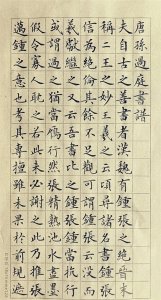 唐孫過庭書譜
夫自古之善書者漢魏有鍾張之絕晉末
稱二王之妙王羲之云頃尋諸名書鍾張
信為絕倫其餘不足觀可謂鍾張云沒而
羲獻繼之又云吾書比之鍾張鍾當抗行
或謂過之張當鴈行然張精熟池水盡墨
假令寡人耽之若此未必謝之此乃推張
邁鍾之意也考其專擅雖未果於前規